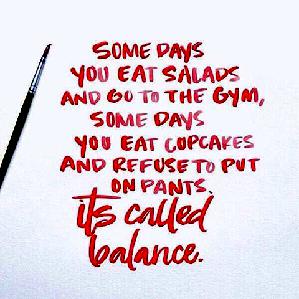 SOME DAYS
YOU EAT SALADS
AND GO TO THE GYM,
SOME DAYS
YOU EAT CUPCAKES
AND REFUSE TO PUT
ON PANTS.
it's called
balance.